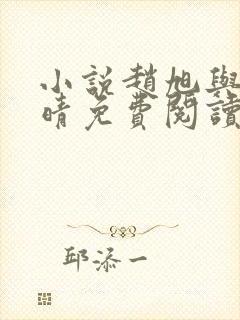 小説趙旭與
晴免費閱讀
邱添一